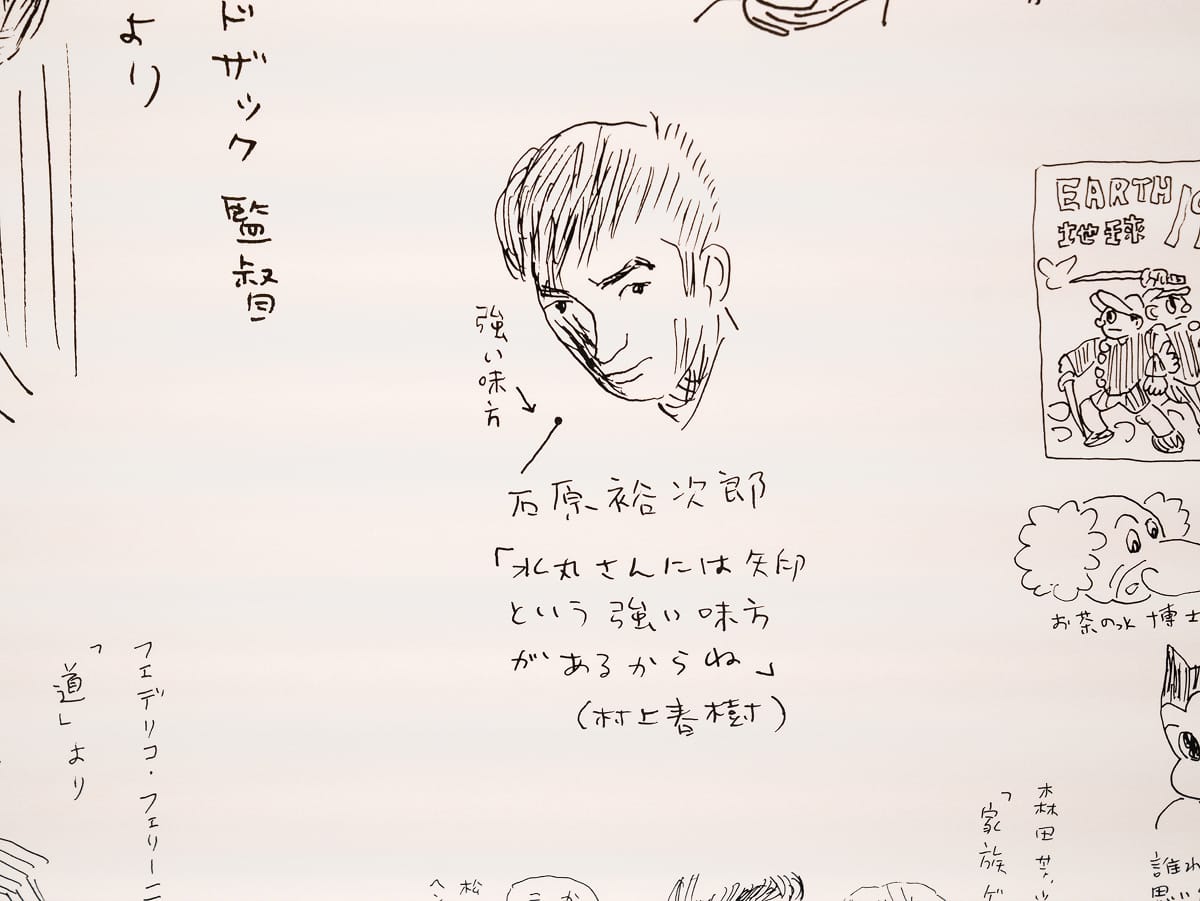 ドザック監督
より
強い味方
石原裕次郎
「水丸さんには矢印
という強い味方
があるからね」
(村上春樹)
EARTH
地球
お茶の水博士
フェデリコ・フェリーニ
「道」より
森田芳
「家族ゲ
誰れ
思い
松
ヘン